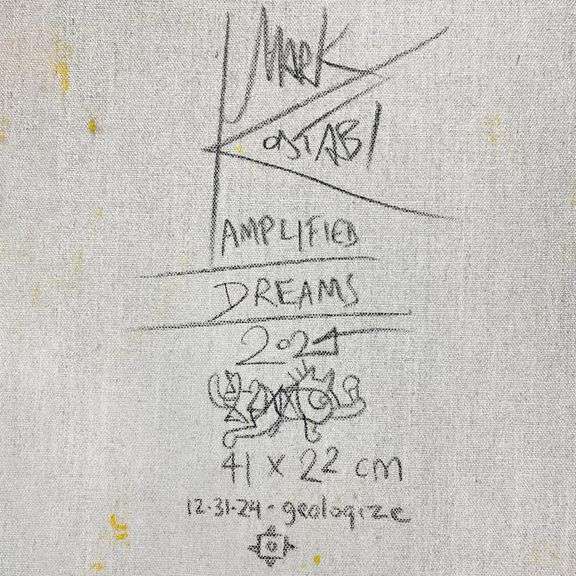 Mark
Kostabi
AMPLIFIED
DREAMS
2024
41 x 22 cm
12-31-24 - geologize